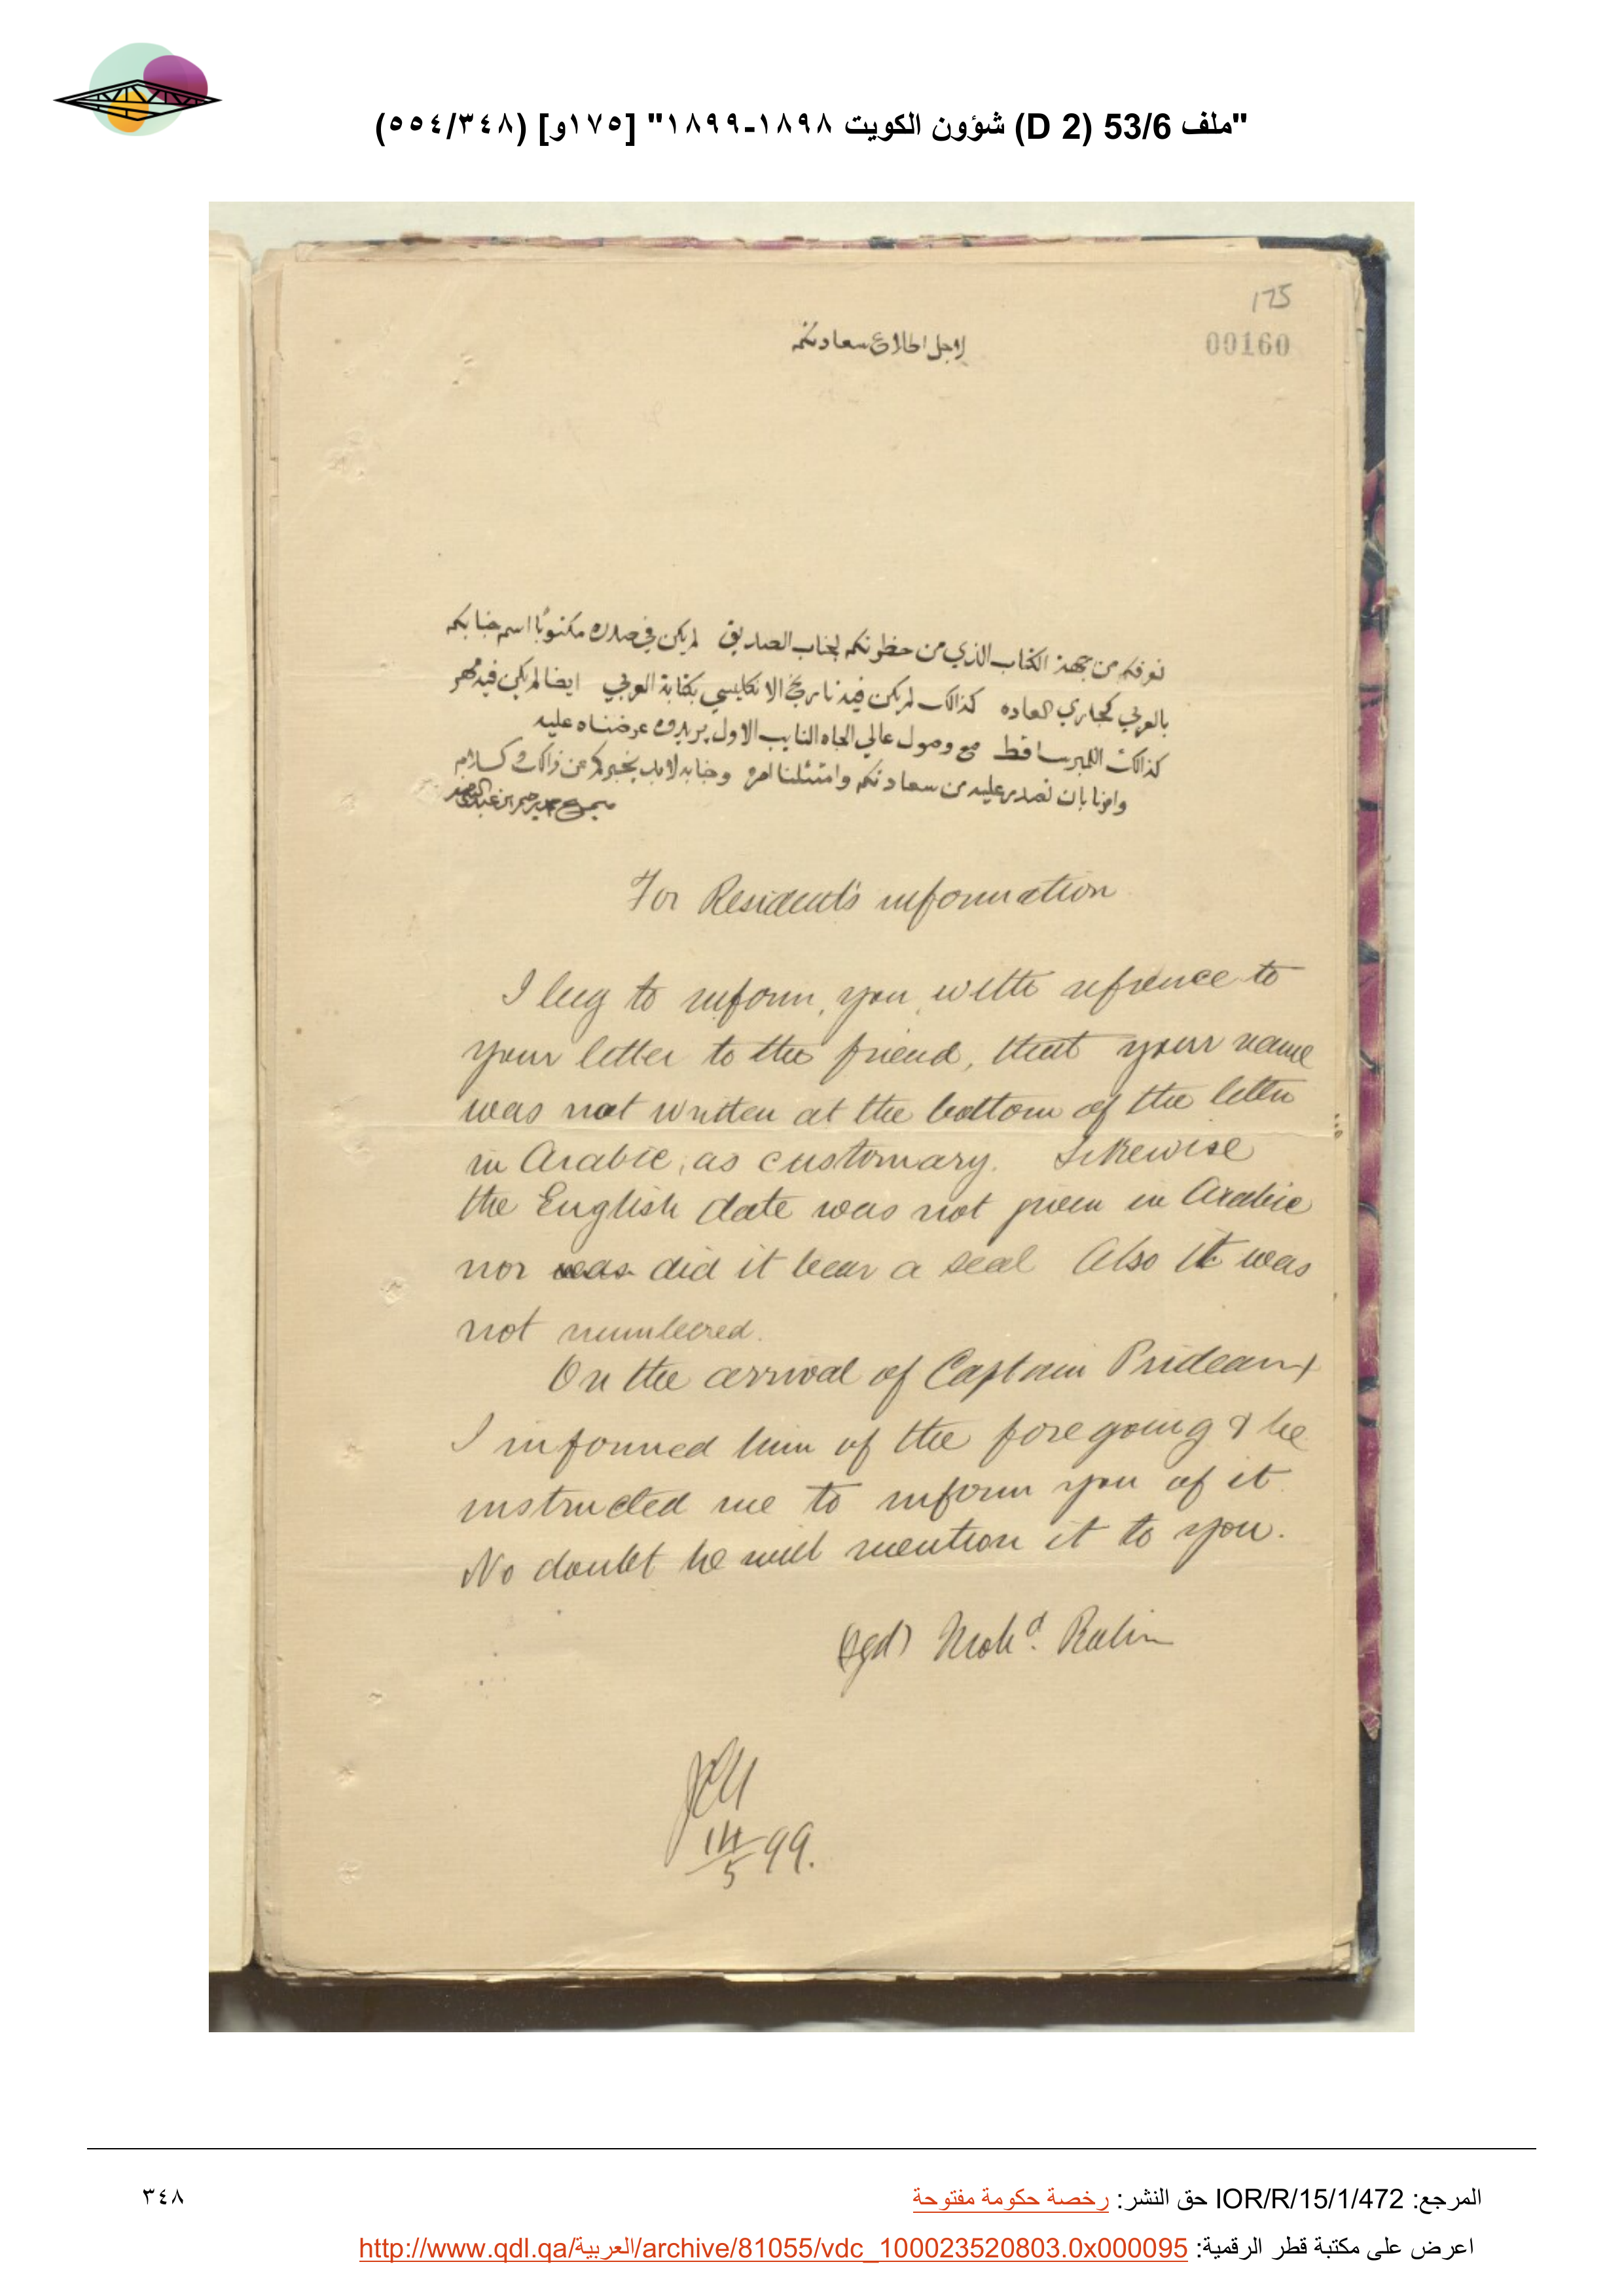 "ملف 53/6 (D 2) شؤون الكويت ١٨٩٨-١٨٩٩" [١٧٥و] (٥٥٤/٣٤٨)
175
00160
لاجل اطلاع سعادتكم
نعرفكم من جهة الكتاب الذي من حظرتكم لجناب الصديق لم يكن في صدره مكتوبًا اسم جنابكم
بالعربي كجاري العاده كذالك لم يكن فيه تاريخ الانكليسي بكتابة العربي ايضا لم يكن فيه مهر
كذالك النمبر ساقط مع وصول عالي الجاه النايب الاول بريدوه عرضناه عليه
وامرنا بان نصدر عليه من سعادتكم وامتثلنا امره وجنابه لابد يخبركم عن ذالك وسلام
محمد رحيم ابن عبد
For Resident's information
I beg to inform, you, with refrence to
your letter to the friend, that your name
was not written at the bottom of the letter
in Arabic, as customary. Likewise
the English date was not given in Arabic
nor was did it bear a seal Also it was
not numbered.
On the arrival of Captain Prideaux
I informed him of the foregoing & he
instructed me to inform you of it
No doubt he will mention it to you.
(sgd) Mohd. Rahim
14/5 99.
المرجع: IOR/R/15/1/472 حق النشر: رخصة حكومة مفتوحة
٣٤٨
اعرض على مكتبة قطر الرقمية: http://www.qdl.qa/العربية/archive/81055/vdc_100023520803.0x000095